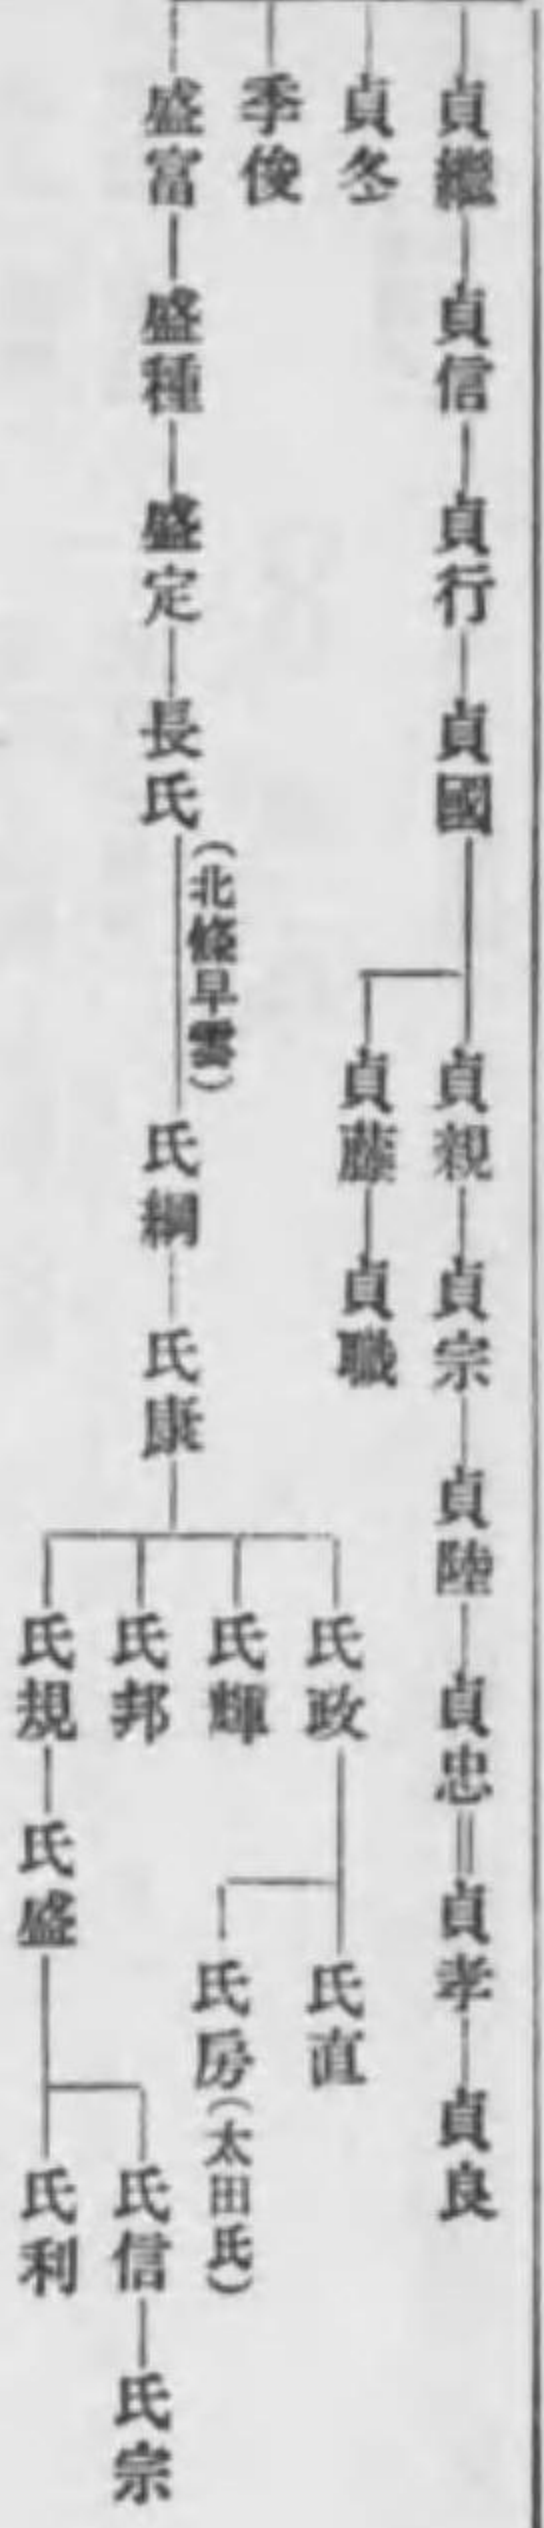 貞繼
貞信
貞行
貞國
貞親
貞宗
貞陸
貞忠
貞孝
貞良
貞藤
貞職
貞冬
季俊
盛富
盛種
盛定
長氏
(北條早雲)
氏綱
氏康
氏政
氏直
氏房(太田氏)
氏輝
氏邦
氏規
氏盛
氏信
氏宗
氏利